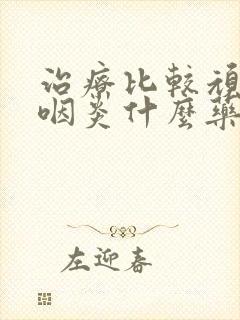 治療比較
咽炎什麼藥
左迎春